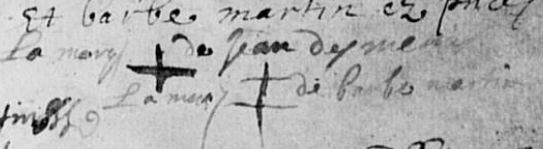 Et barbe martin ez pnces
la marq de Jean
la marq de barbe martin